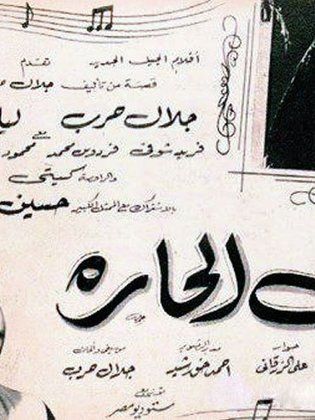 أفلام الجيل الجديد تقدم
قصة من تأليف جلال
جلال حرب
مع
فريد شوقي فردوس محمد محمود
والراقصة كيتي
بالاشتراك مع الممثل الكبير حسين
الحاره
حوار
علي الزرقاني
مدير التصوير
احمد خورشيد
موسيقى والحان
جلال حرب
ستوديو مصر